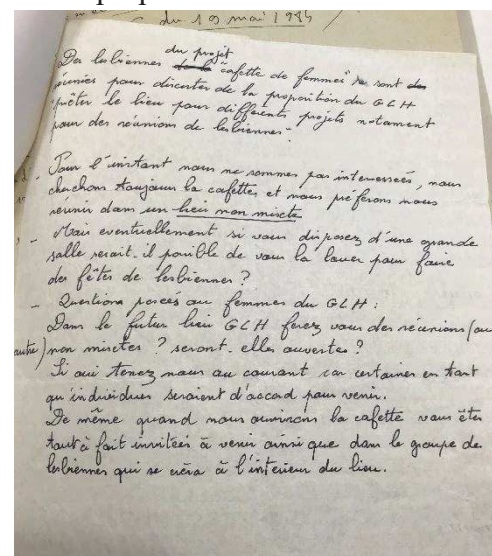 du 19 mai 1984
du projet
Des lesbiennes de la "cafette de femmes" se sont des
réunies pour discuter de la proposition du GLH
prêter le lieu pour différents projets notament
pour des réunions de lesbiennes -
Pour l'instant nous ne sommes pas interressées, nous
cherchons toujours la cafettes et nous préférons nous
réunir dans un lieu non mixte
- Mais eventuellement si vous disposez d'une grande
salle serait-il possible de vous la louer pour faire
des fêtes de lesbiennes ?
- Questions posées au femmes du GLH :
Dans le futur lieu GLH ferez vous des réunions (ou
autre) non mixtes ? seront-elles ouvertes ?
Si oui tenez nous au courant car certaines en tant
qu'individues seraient d'accord pour venir.
De même quand nous ouvrirons la cafette vous êtes
tout à fait invitées à venir ainsi que dans le groupe de
lesbiennes qui se créra à l'intérieur du lieu.